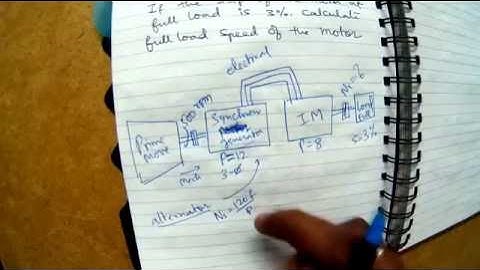 If the
full Load is 3%. Calculate
full load Speed of the Motor
electrical
500 rpm
Nr = ?
Prime
Mover
Synchron
Generator
P=12
3-Φ
IM
P=8
Load
Full
S=3%
Mech
alternator
Ns = 120f
P